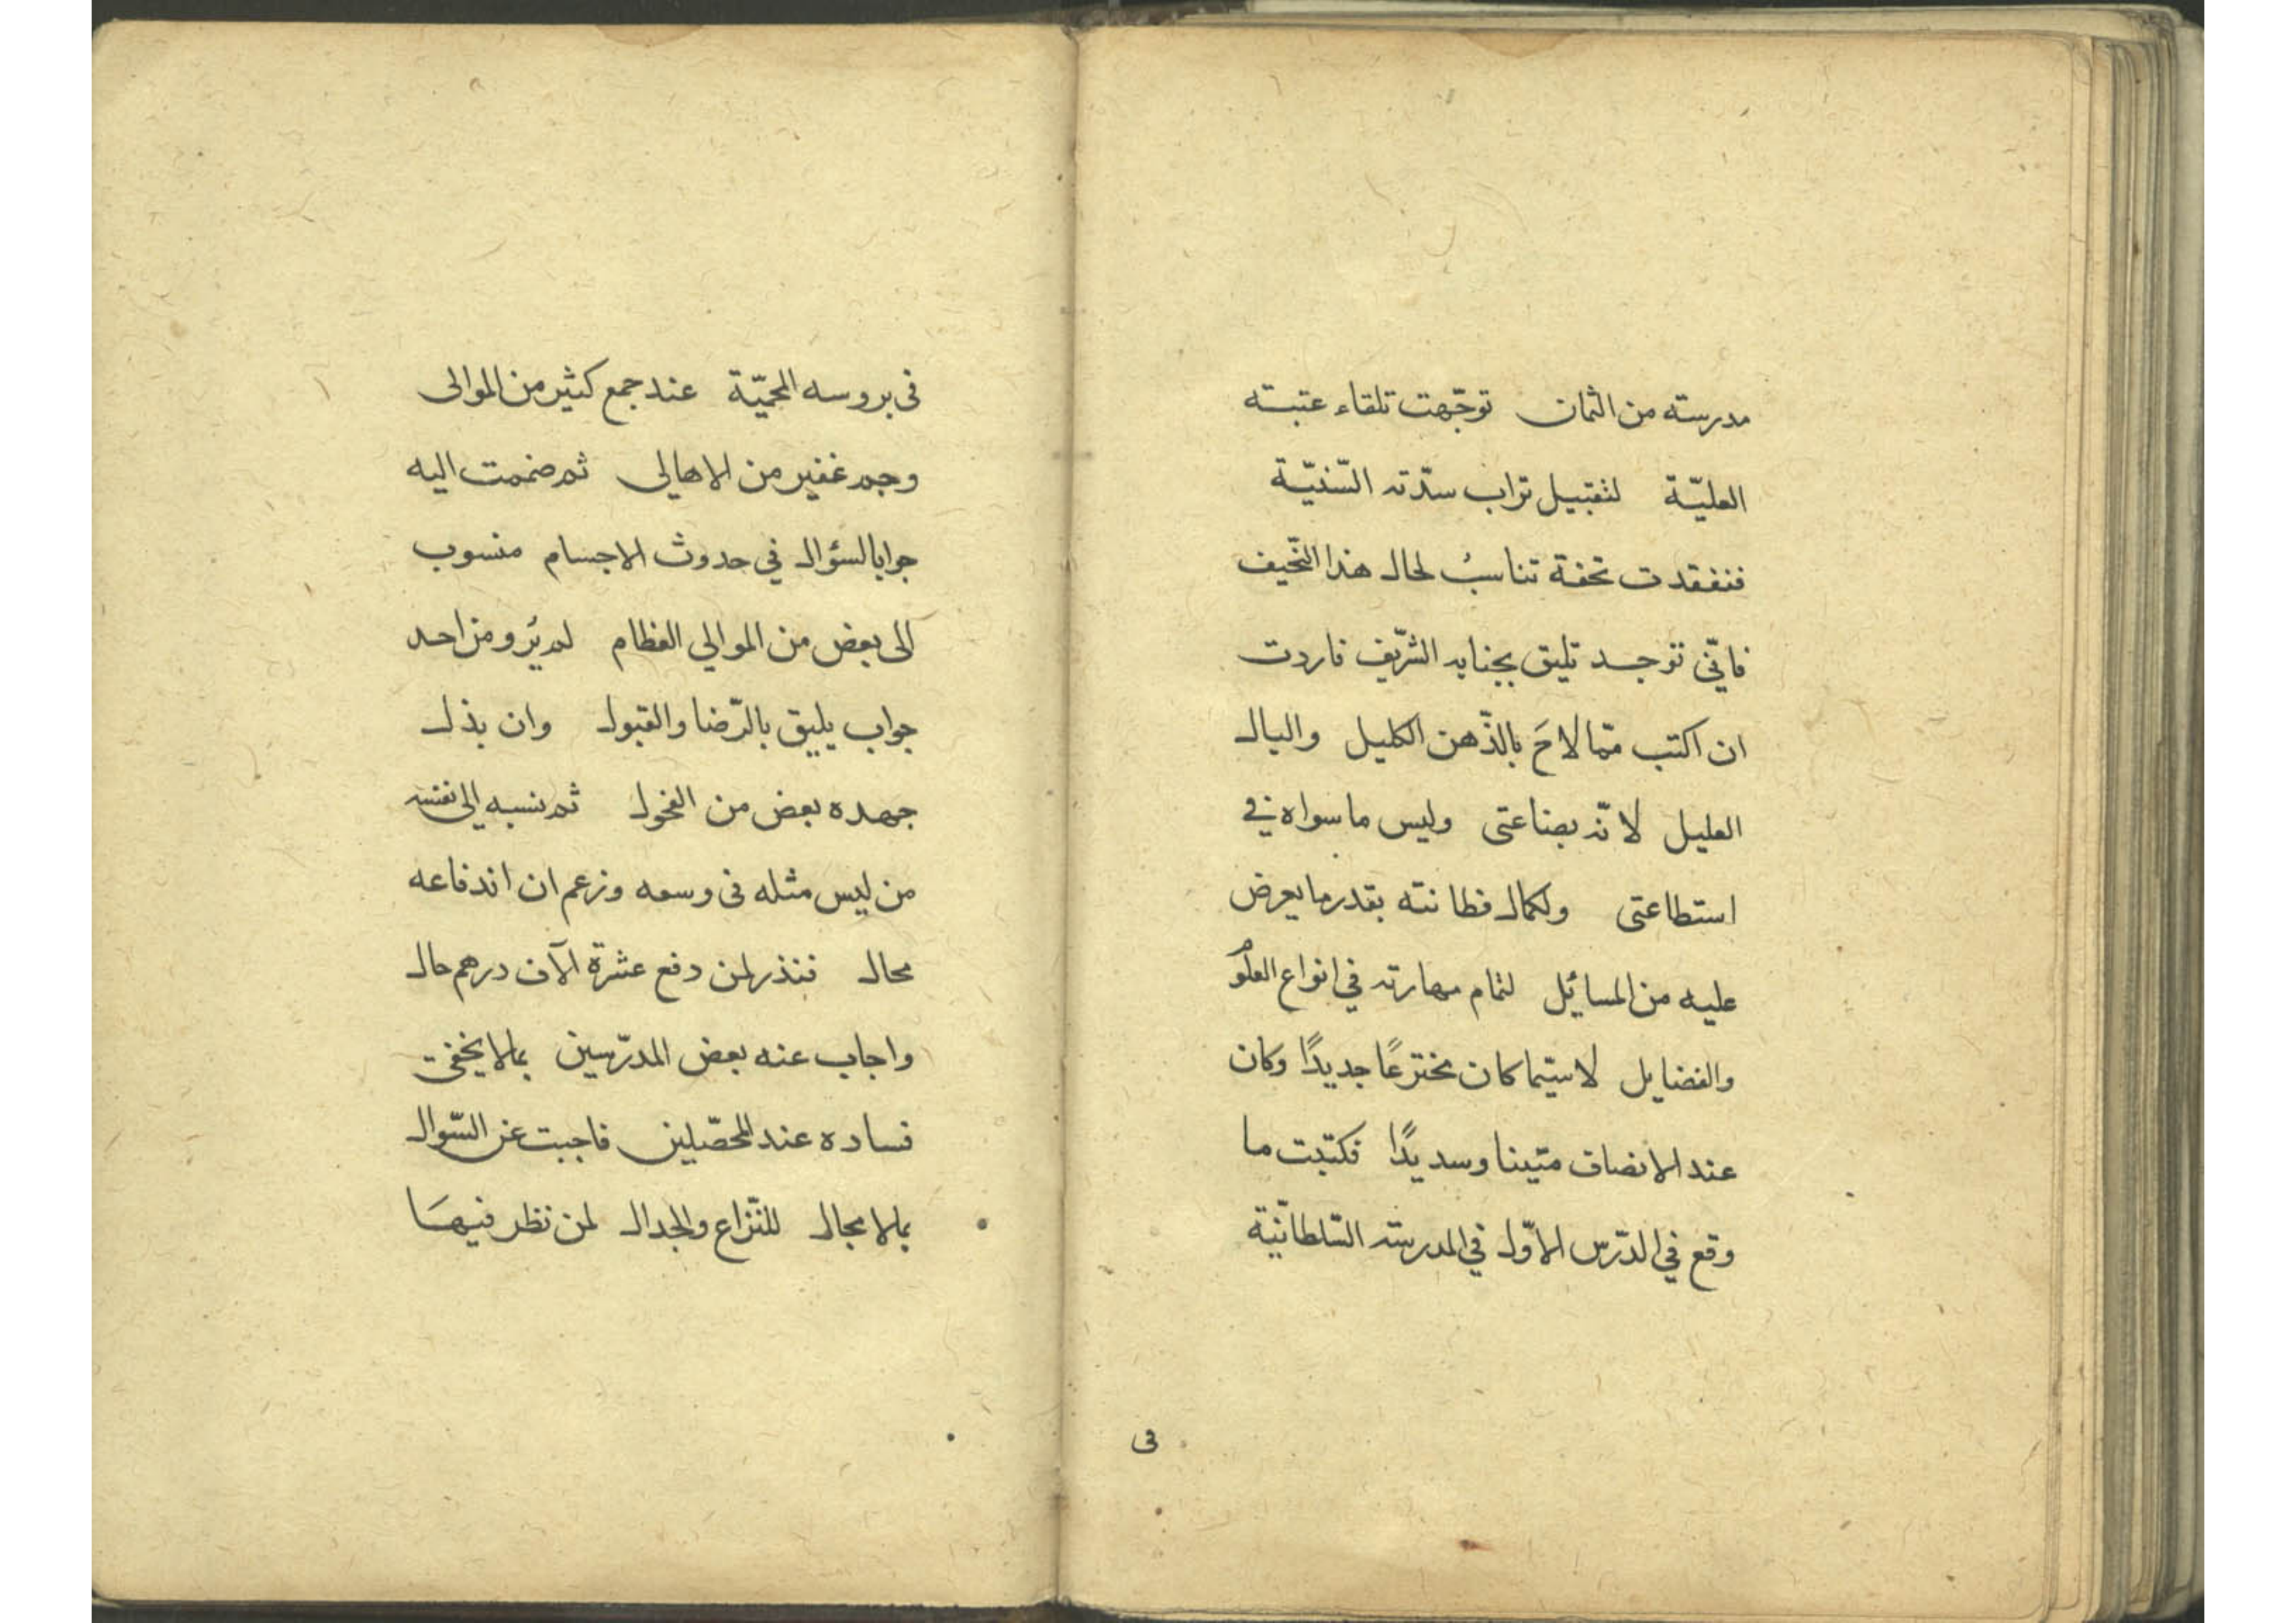 مدرسته من الثمان توجّهت تلقاء عتبته
العليّة لتقبيل تراب سدّته السّنيّة
فتفقدت تحفة تناسبُ لحال هذا النّحيف
فانّى توجد تليق بجنابه الشّريف فاردت
ان اكتب ممّا لاحَ بالذّهن الكليل والبال
العليل لانّه بضاعتى وليس ما سواه في
استطاعتى ولكمال فطانته بقدر ما يعرض
عليه من المسائل لتمام مهارته في انواع العلوم
والفضايل لاسيّما كان مخترعًا جديدًا وكان
عند الانصاف متينا وسديدًا فكتبت ما
وقع في الدّرس الاوّل في المدرسة السّلطانيّة
فى
فى بروسه المحميّة عند جمع كثير من الموالى
وجم غفير من الاهالي ثم ضممت اليه
جوابا لسؤال في حدوث الاجسام منسوب
الى بعض من الموالي العظام لم يُرو من احد
جواب يليق بالرّضا والقبول وان بذل
جهده بعض من الفحول ثم نسبه الى نفسه
من ليس مثله فى وسعه وزعم ان اندفاعه
محال فنذر لمن دفع عشرة آلاف درهم حال
واجاب عنه بعض المدرّسين بما لا يخفى
فساده عند المحصّلين فاجبت عن السّوال
بما لا مجال للنّزاع والجدال لمن نظر فيهَا